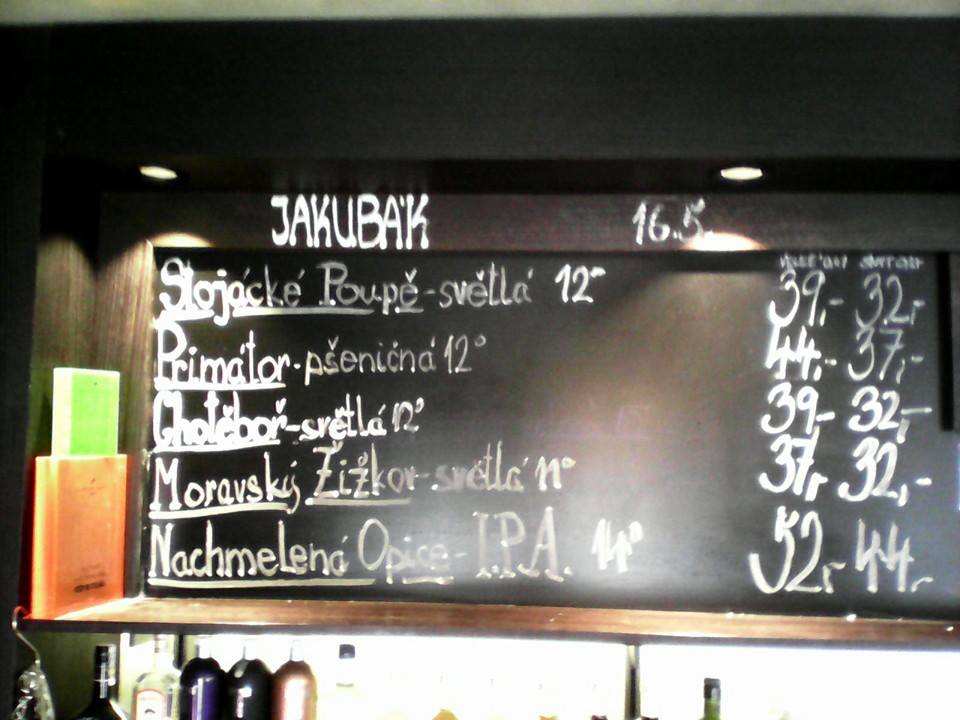 JAKUBÁK 16.5.
Slojácké Poupě-světlá 12° 39,- 32,-
Primátor-pšeničná 12° 44,- 37,-
Chotěboř-světlá 12° 39,- 32,-
Moravský Žižkov-světlá 11° 37,- 32,-
Nachmelená Opice- I.P.A. 14° 52,- 44,-